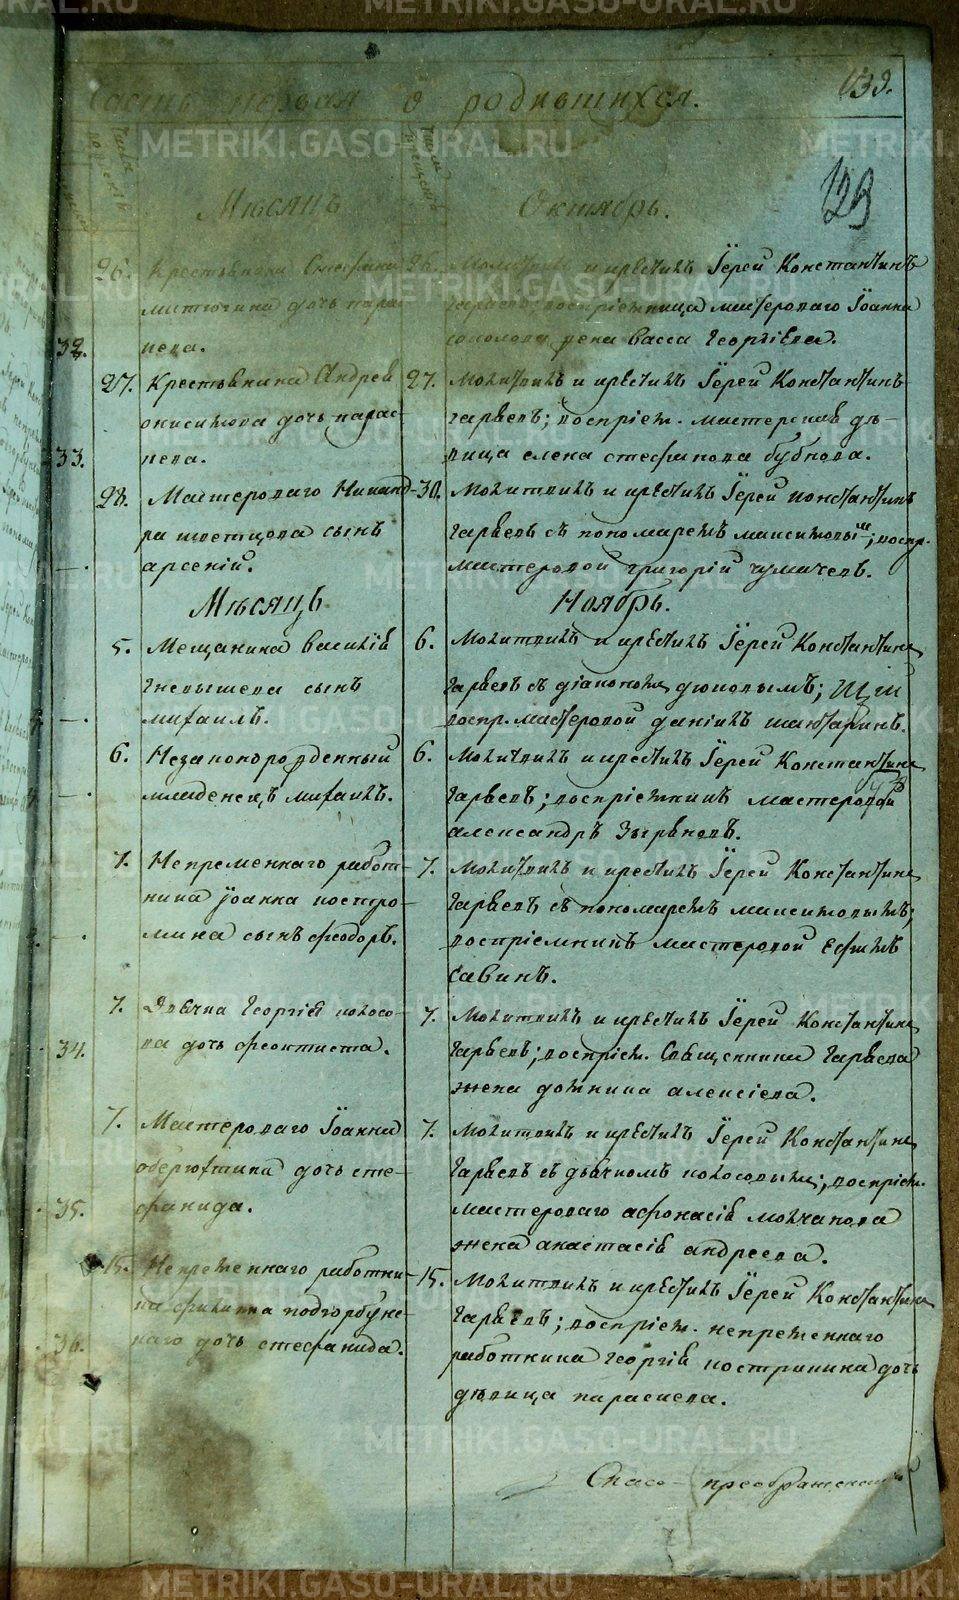 Часть первая о родившихся.
139.
129
Мѣсяцъ
Октябрь.
26. Крестьянина Стефана
митюгина дочь пара-
32. скева.
26. Молитвилъ и крестилъ Іерей Константинъ
Гаряевъ; воспріемница мастероваго Іоанна
соколова жена васса Георгіева.
27. Крестьянина Андрея
онисимова дочь парас-
33. кева.
27. Молитвилъ и крестилъ Іерей Константинъ
Гаряевъ; воспріем. мастерская дѣ-
вица елена стефанова бубнова.
28. Мастероваго Никанд-
ра шветцова сынъ
арсеній.
30. Молитвилъ и крестилъ Іерей Константинъ
Гаряевъ съ пономаремъ максимовымъ; воспр.
мастеровой григорій чумачевъ.
Мѣсяцъ
Ноябрь.
5. Мещанина василія
сынъ
михаилъ.
6. Молитвилъ и крестилъ Іерей Константинъ
Гаряевъ съ діакономъ дюковымъ;
воспр. мастеровой даніилъ
6. Незаконорожденный
младенецъ михаилъ.
6. Молитвилъ и крестилъ Іерей Константинъ
Гаряевъ; воспріемникъ мастеровой
александръ
7. Непременнаго работ-
ника Іоанна костро-
мина сынъ феодоръ.
7. Молитвилъ и крестилъ Іерей Константинъ
Гаряевъ съ пономаремъ максимовымъ;
воспріемникъ мастеровой Ефимъ
Савинъ.
7. Дьячка Георгія колосо-
34. ва дочь феоктиста.
7. Молитвилъ и крестилъ Іерей Константинъ
Гаряевъ; воспріем. Священника Гаряева
жена домника алексіева.
7. Мастероваго Іоанна
оберюхтина дочь сте-
35. фанида.
7. Молитвилъ и крестилъ Іерей Константинъ
Гаряевъ съ дьячкомъ колосовымъ; воспріем.
мастероваго афонасія молчанова
жена анастасія андреева.
15. Непременнаго работни-
ка филиппа подгорбунс-
36. каго дочь стефанида.
15. Молитвилъ и крестилъ Іерей Константинъ
Гаряевъ; воспріем. непременнаго
работника георгія дочь
дѣвица параскева.
Спасо-преображенской
METRIKI.GASO-URAL.RU